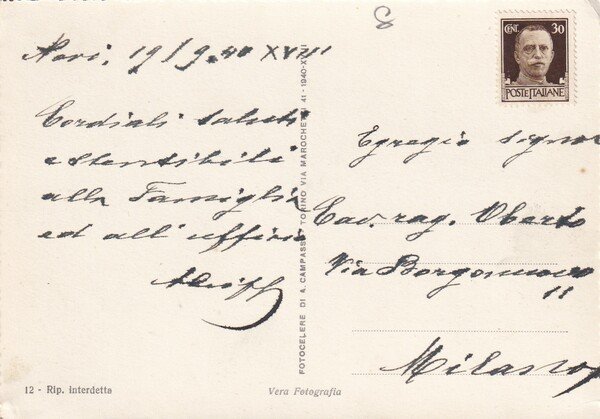 Novi, 19/9.40 XVIII
Cordiali saluti
estensibili
alla Famiglia
ed all'ufficio
8
CENT. 30
POSTE ITALIANE
Egregio signor
Cav. rag. Oberto
Via Borgonuovo
11
Milano
FOTOCELERE DI A. CAMPASSI TORINO VIA MAROCHETTI 41 - 1940-XVIII
12 - Rip. Interdetta
Vera Fotografia